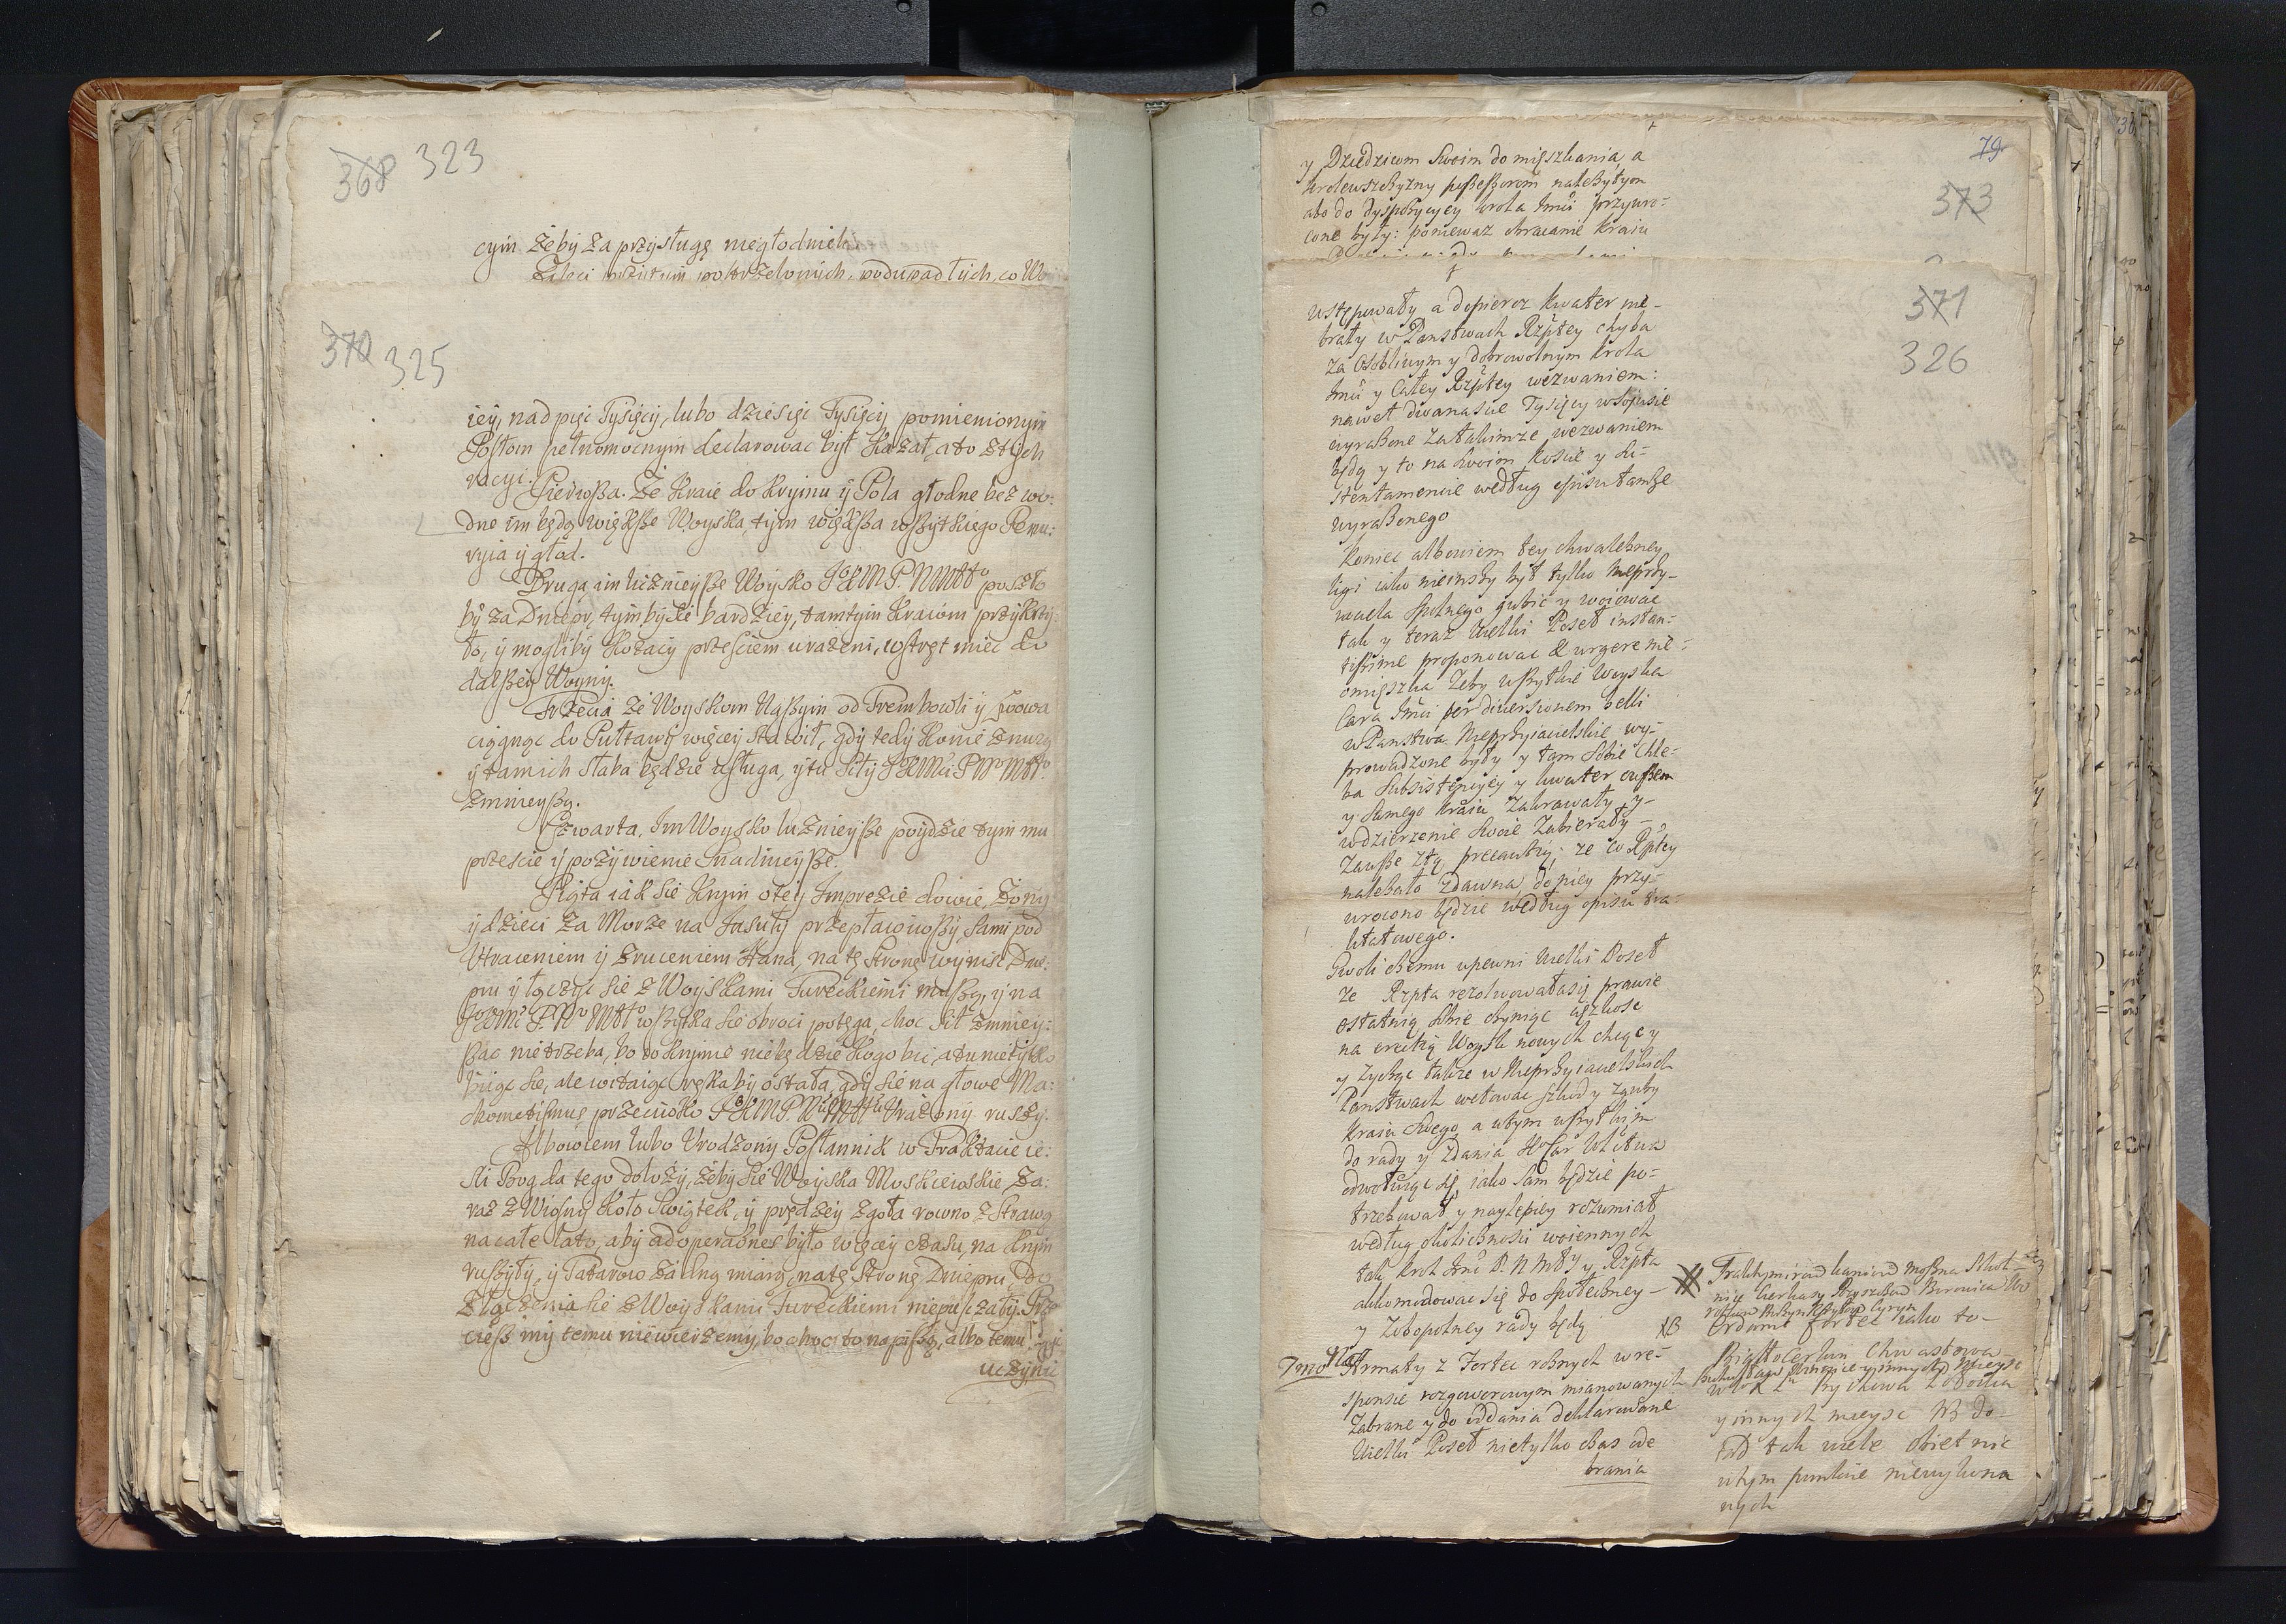 368 323
cym żeby za przysługę niegłodnieli
370 325
iey, nad pięć Tysięcy, lubo dziesięć Tysięcy pomienionym
Posłom pełnomocnym declarowac był Kazał, a to z tych
racyi.
Pierwsza. Że Kraie do Krymu y Pola głodne bez wo:
dne im będą większe Woyska, tym większa wszytkiego Penu:
ryia y głod.
Druga im licznieysze Woysko poszło
by za Dniepr, tym by się bardziey, tamtym Kraiom przykrzy:
ło, y mogliby Kozacy przesciem urażeni, wstręt miec do
dalszey Woyny.
Trzecia że Woyskom Naszym od Trembowli y Lwowa
ciągnąc do Pułtawy więcey sta mil, gdy tedy Konie znużą
y tam ich słaba będzie usługa, y tu siły
zmnieyszą.
Czwarta, Im Woysko licznieysze poydzie tym mu
przescie y pożywienie snadnieysze.
Piąta iak się Krym o tey Imprezie dowie, Żony
y dzieci za Morze na przeprawiwszy, sami pod
Utraceniem y zruceniem Hana, na tę stronę wynisc Dnie:
pru y łączyc się z Woyskami Tureckiemi muszą, y na
wszytka się obroci potęga, choc sił zmniey:
szac nie trzeba, bo w Krymie nie będzie kogo bic, a tu nie tylko
biiąc się, ale witaiąc ręka by ostała, gdy się na głowę Ma:
chometismus przeciwko urażony ruszy.
Albowiem lubo Urodzony Posłannik w Traktacie ie:
sli Bog da tego dołoży, żeby się Woyska Moskiewskie za:
raz z Wiosny Koło Swiątek, y prędzey zgoła rowno z Strawą
na całe lato, aby ad operationes było więcey czasu, na Krym
ruszyły, y Tatarow żadną miarą, na tę stronę Dniepru, do
złączenia się z Woyskami Tureckiemi niepuszczały. Prze
cięsz my temu niewierzemy, bo choc to napiszą, albo temu
uczynic
79
373
y Dziedzicom swoim do mięszkania, a
krolewszczyzny possessorom należytym
abo do dyspozycyey krola Jmci przywro:
cone były: poniewaz obracanie kraiu
371
326
ustępowały a dopieroz kwater nie-
brały w Panstwach Rzptey chyba
za osobliwym y dobrowolnym krola
Jmci y całey Rzptey wezwaniem:
nawet dwanascie Tysięcy w sojusie
wyrażone za takimze wezwaniem
będą y to na swoim koscie y su-
stentamencie według opisu tamże
wyrażonego
Koniec albowiem tey chwalebney
ligi iako nieinszy był tylko nieprzy-
iaciela spolnego gubic y woiowac
tak y teraz Wielki Poseł instan-
tissime proponowac & urgere nie
omięszka żeby wszytkie woyska
Cara Jmci per diversionem belli
w Panstwa Nieprzyiacielskie wy-
prowadzone były y tam sobie chle-
ba subsistencyey y kwater
y samego kraiu zakrawały y-
w dzierzenie swoie zabierały-
zawsze z tą precautią; ze co Rptey
należało zdawna, do niey przy-
wrocono będzie według opisu tra-
ktatowego.
Gwoli czemu upewni Wielki Poseł
ze Rzpta rezolwowała się prawie
ostatnią sobie czyniąc ciężkosc
na erectią Woysk nowych chcący
y życząc także w Nieprzyiacielskich
Panstwach wetowac szkod y zguby
kraiu swego, a w tym wszytkim
do rady y zdania
odwołuiąc się, iako sam będzie po-
trzebował y naylepiey rozumiał
według okolicznosci woiennych
tak krol Jmc P. N. Mły y Rzpta
akkomodowac się do społeczney-
y zobopolney rady będą
7mo Armaty z Fortec roznych w re-
sponsie rozgoworowym mianowanych
zabrane y do oddania deklarowane
Wielki Poseł nietylko czas ode
brania
NB
iako to-
Chwastowa-
y innych mieysc
y innych mieysc NB do-
kąd tak wiele obietnic
w tym punkcie niewykona
nych